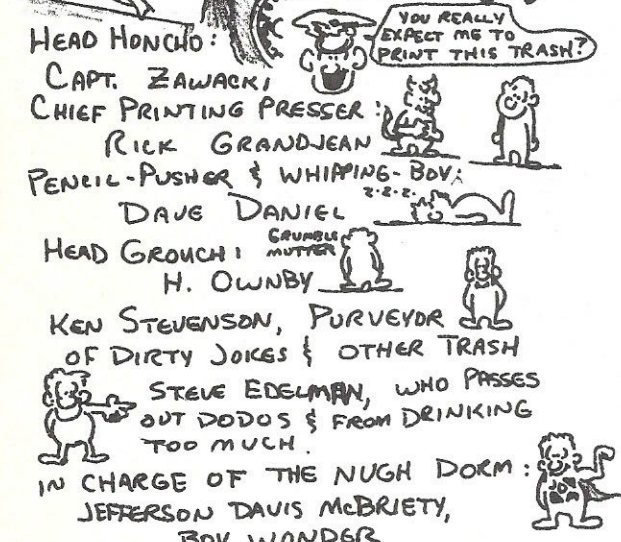 YOU REALLY
EXPECT ME TO
PRINT THIS TRASH?
HEAD HONCHO:
CAPT. ZAWACKI
CHIEF PRINTING PRESSER:
RICK GRANDJEAN
PENCIL-PUSHER & WHIPPING-BOY:
Z-Z-Z.
DAVE DANIEL
HEAD GROUCH:
GRUMBLE
MUTTER
H. OWNBY
KEN STEVENSON, PURVEYOR
OF DIRTY JOKES & OTHER TRASH
STEVE EDELMAN, WHO PASSES
OUT DODOS & FROM DRINKING
TOO MUCH.
IN CHARGE OF THE NUGH DORM:
JEFFERSON DAVIS McBRIETY,
BOY WONDER